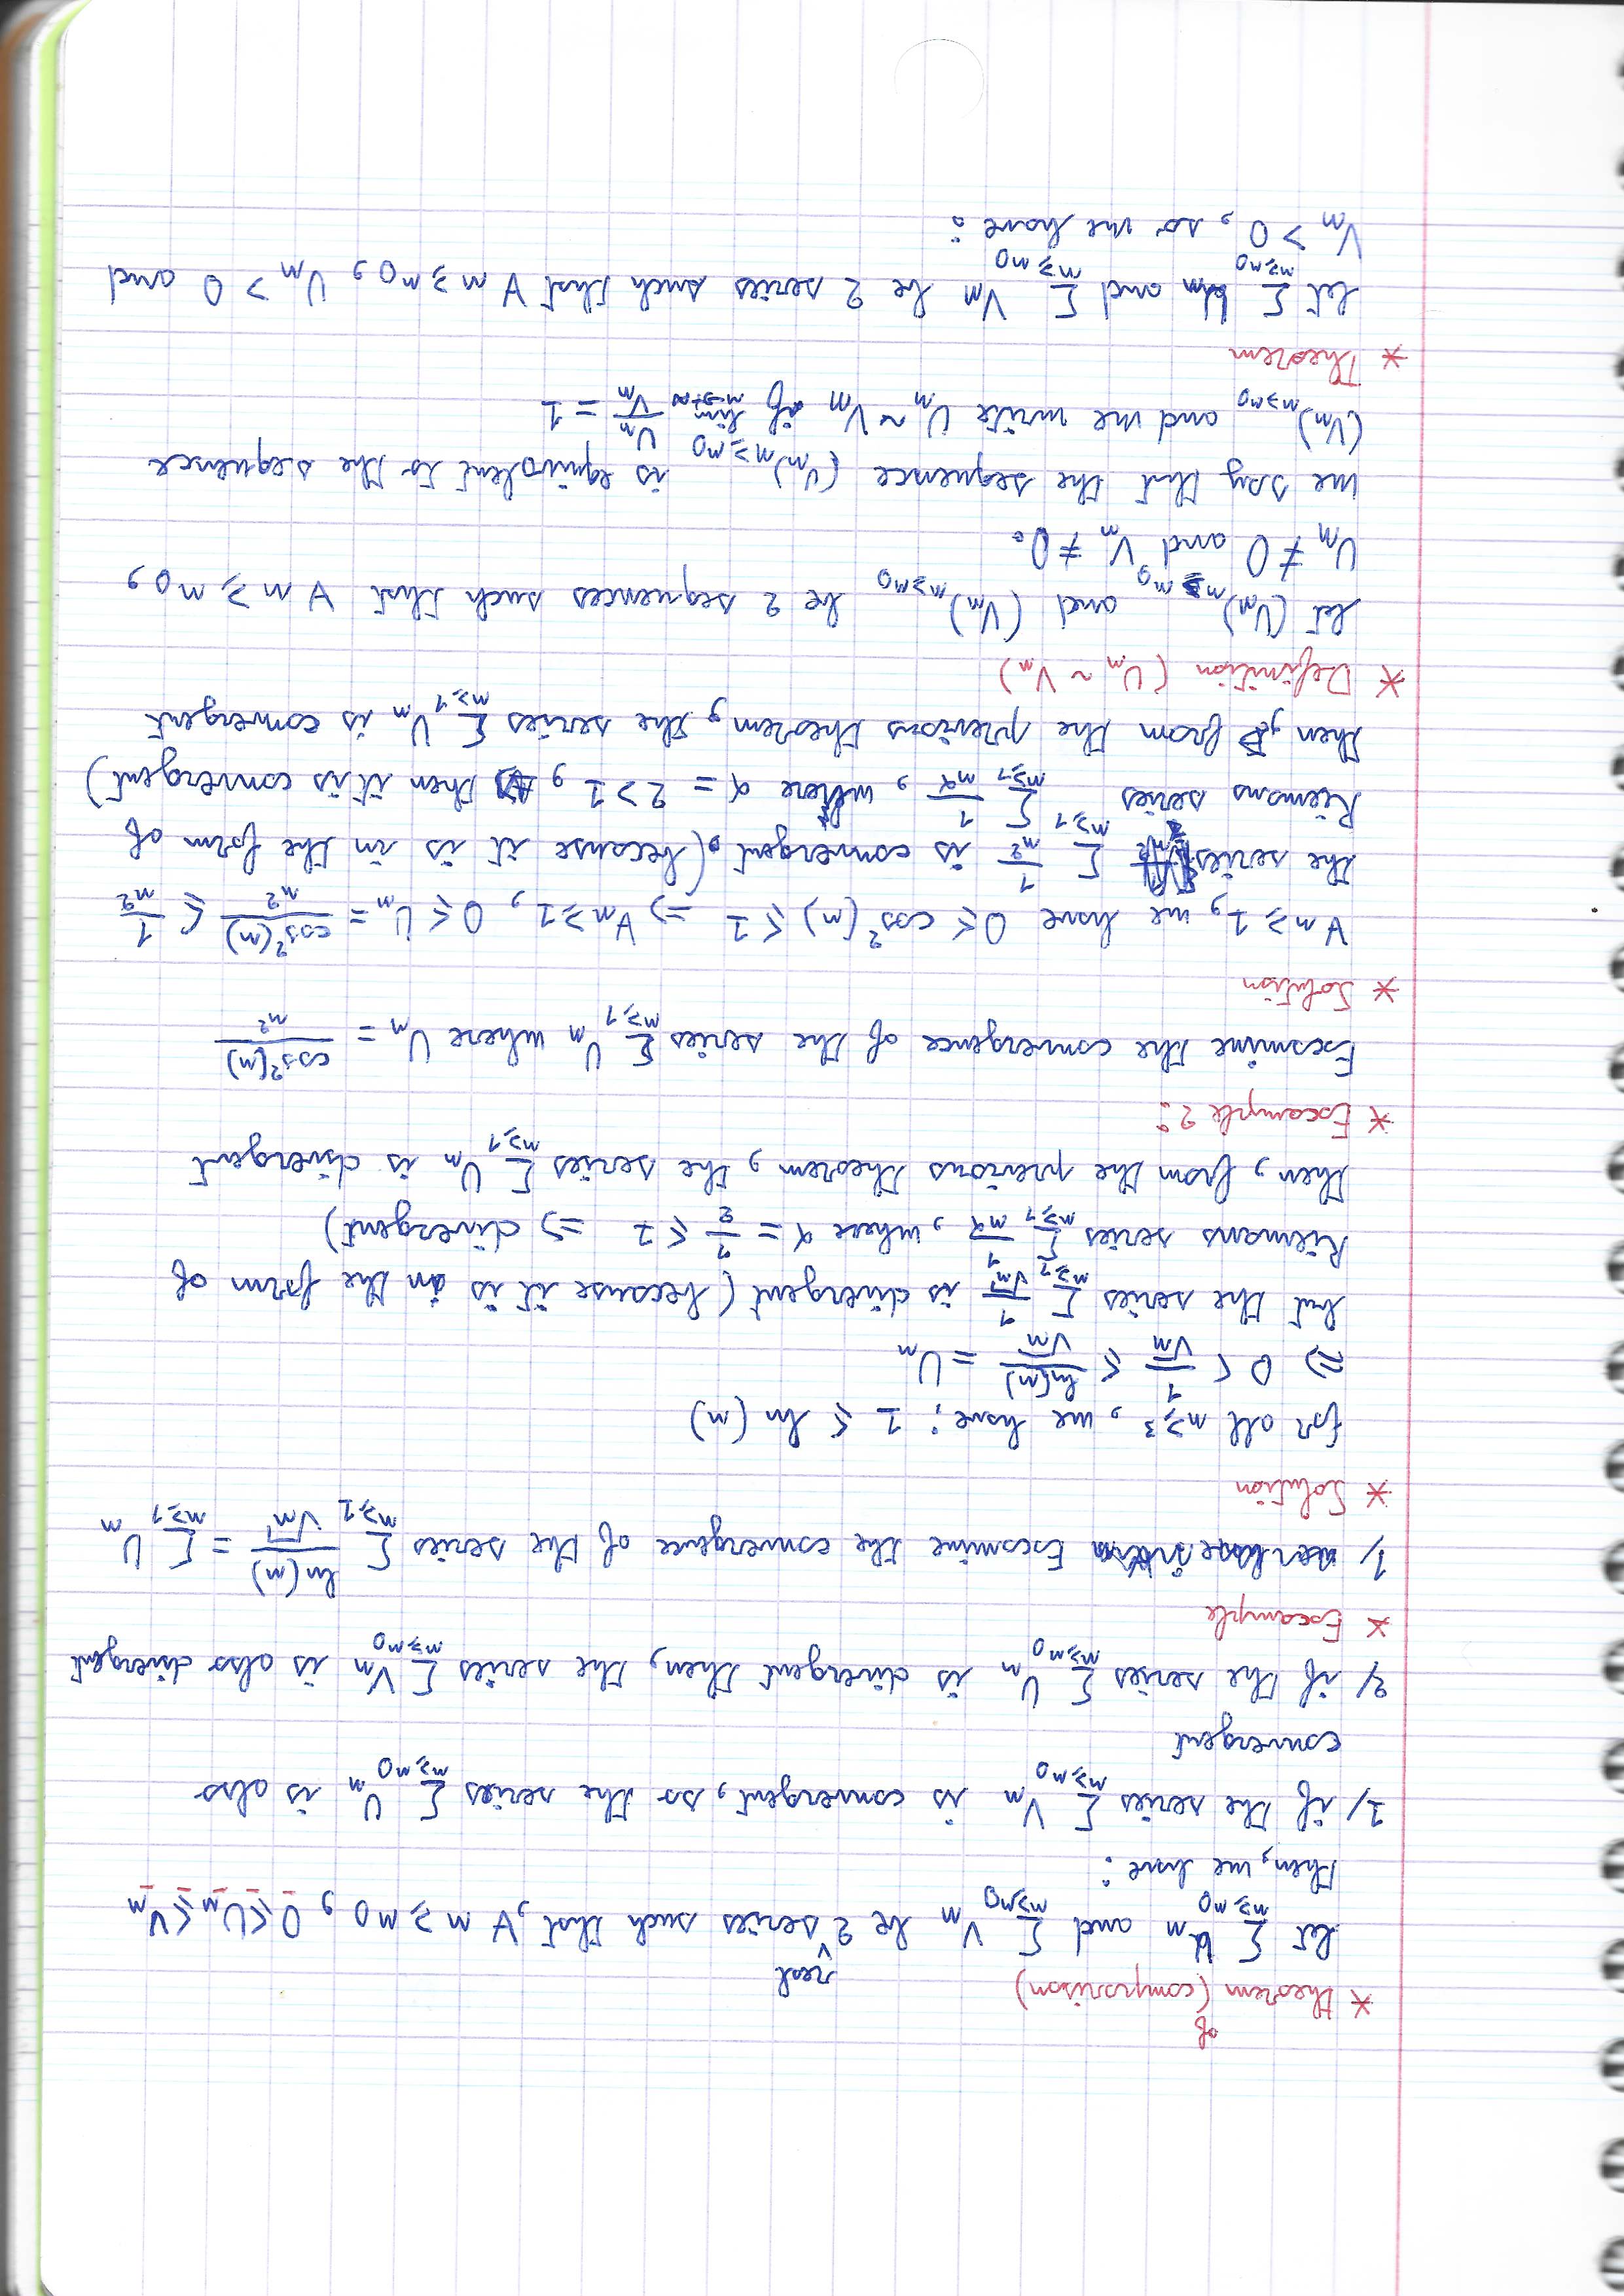 * theorem (of comparison)
let Σ Un n≥n0 and Σ Vn n≥n0 be 2 real series such that, ∀ n ≥ n0, 0 ≤ Un ≤ Vn
then, we have:
1/ if the series Σ Vn n≥n0 is convergent, so the series Σ Un n≥n0 is also
convergent
2/ if the series Σ Un n≥n0 is divergent then, the series Σ Vn n≥n0 is also divergent
* Example
1/ Examine the convergence of the series Σ n≥1 ln(n)/√n = Σ n≥1 Un
* Solution
for all n≥3, we have: 1 ≤ ln(n)
⇒ 0 < 1/√n ≤ ln(n)/√n = Un
but the series Σ n≥1 1/√n is divergent (because it is in the form of
Riemans series Σ n≥1 1/n^α, where α = 1/2 ≤ 1 ⇒ divergent)
then, from the previous theorem, the series Σ n≥1 Un is divergent
* Example 2:
Examine the convergence of the series Σ n≥1 Un where Un = cos²(n)/n²
* Solution
∀ n ≥ 1, we have 0 ≤ cos²(n) ≤ 1 ⇒ ∀ n ≥ 1, 0 ≤ Un = cos²(n)/n² ≤ 1/n²
the series Σ n≥1 1/n² is convergent (because it is in the form of
Riemans series Σ n≥1 1/n^α, where α = 2 > 1, then it is convergent)
then, from the previous theorem, the series Σ n≥1 Un is convergent
* Definition (Un ~ Vn)
let (Un) n≥n0 and (Vn) n≥n0 be 2 sequences such that ∀ n ≥ n0,
Un ≠ 0 and Vn ≠ 0.
we say that the sequence (Un) n≥n0 is equivalent to the sequence
(Vn) n≥n0 and we write Un ~ Vn if lim n→+∞ Un/Vn = 1
* Theorem
let Σ Un n≥n0 and Σ Vn n≥n0 be 2 series such that ∀ n ≥ n0, Un > 0 and
Vn > 0, so we have: